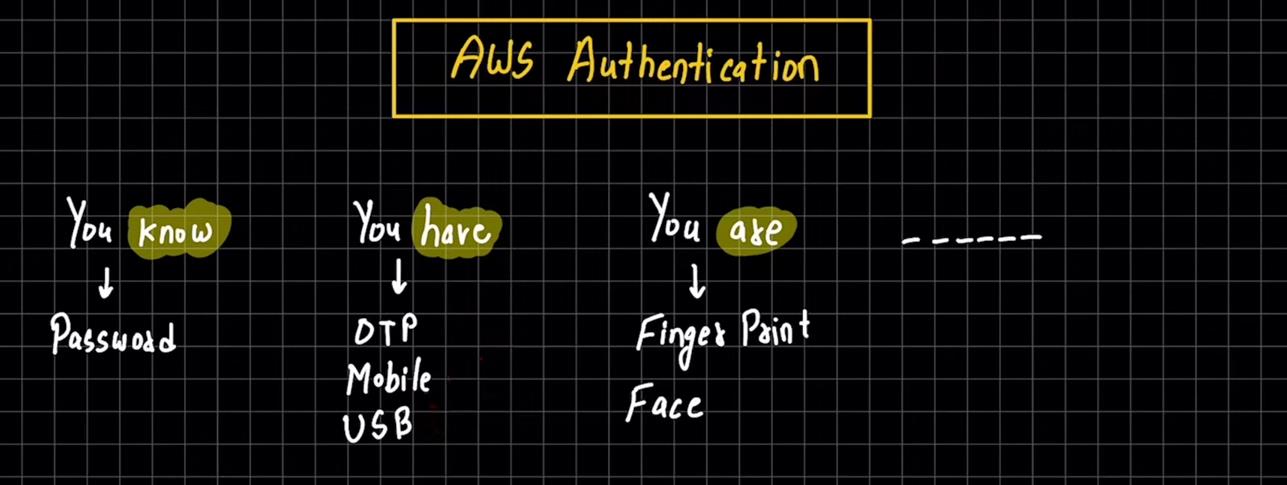 AWS Authentication
You know
Password
You have
OTP
Mobile
USB
You are
Finger Print
Face